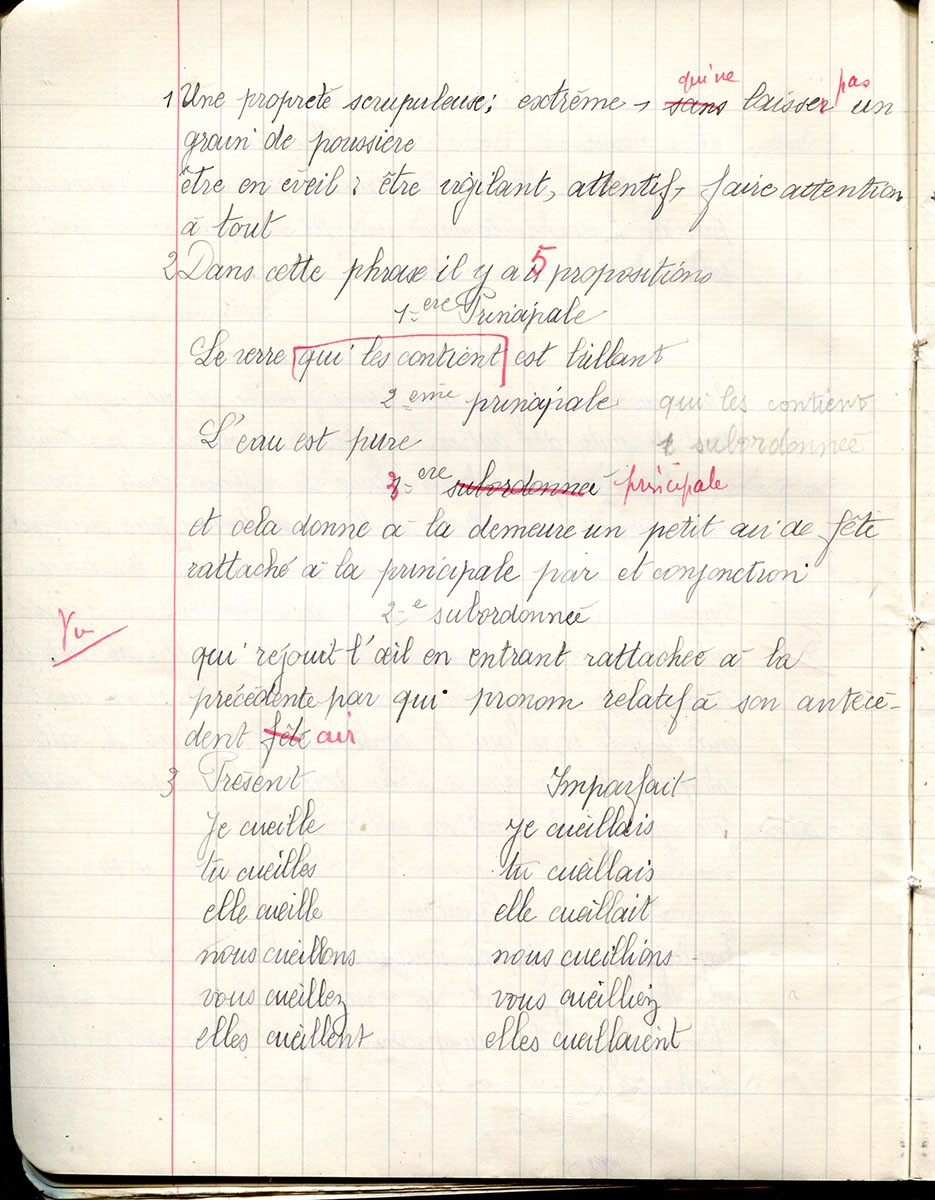 qui ne pas
1 Une propreté scrupuleuse; extrême, sans laisser un
grain de poussière
être en éveil : être vigilant, attentif, faire attention
à tout
2 Dans cette phrase il y a 5 propositions
1-ere Principale
Le verre qui les contient est brillant
2-eme principale qui les contient
L'eau est pure 1 subordonnée
3-ere subordonnée principale
et cela donne à la demeure un petit air de fête
rattaché à la principale par et conjonction
2-e subordonnée
Vu
qui réjouit l'œil en entrant rattachée à la
précédente par qui pronom relatif à son antécé-
dent fête air
3 Présent Imparfait
Je cueille je cueillais
tu cueilles tu cueillais
elle cueille elle cueillait
nous cueillons nous cueillions
vous cueillez vous cueilliez
elles cueillent elles cueillaient